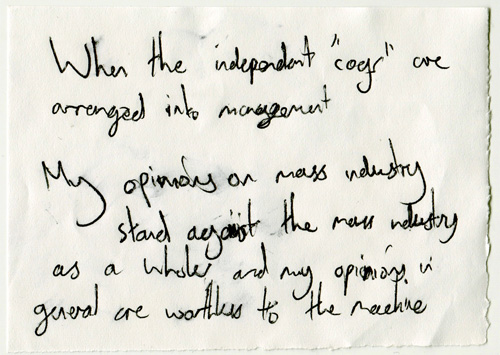 When the independent "cogs" are
arranged into management
My opinions on mass industry
stand against the mass industry
as a whole, and my opinions in
general are worthless to the machine